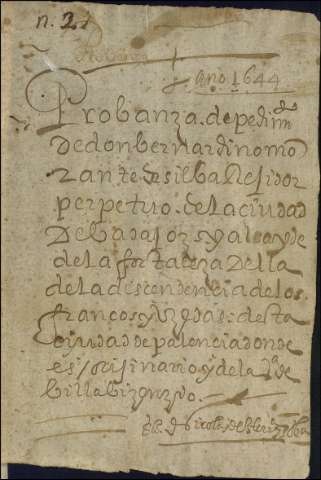 n. 21
Año 1644
Probanza. de pedimto
De don bernardino mo
Rante de silba Residor
perpetuo. de la ciudad
De badajoz y alcayde
de la fortaleza Della
de la descendencia de los.
francos y : desta
Ciudad de palencia donde
es orisinario y de la Va de
billabizenzio.